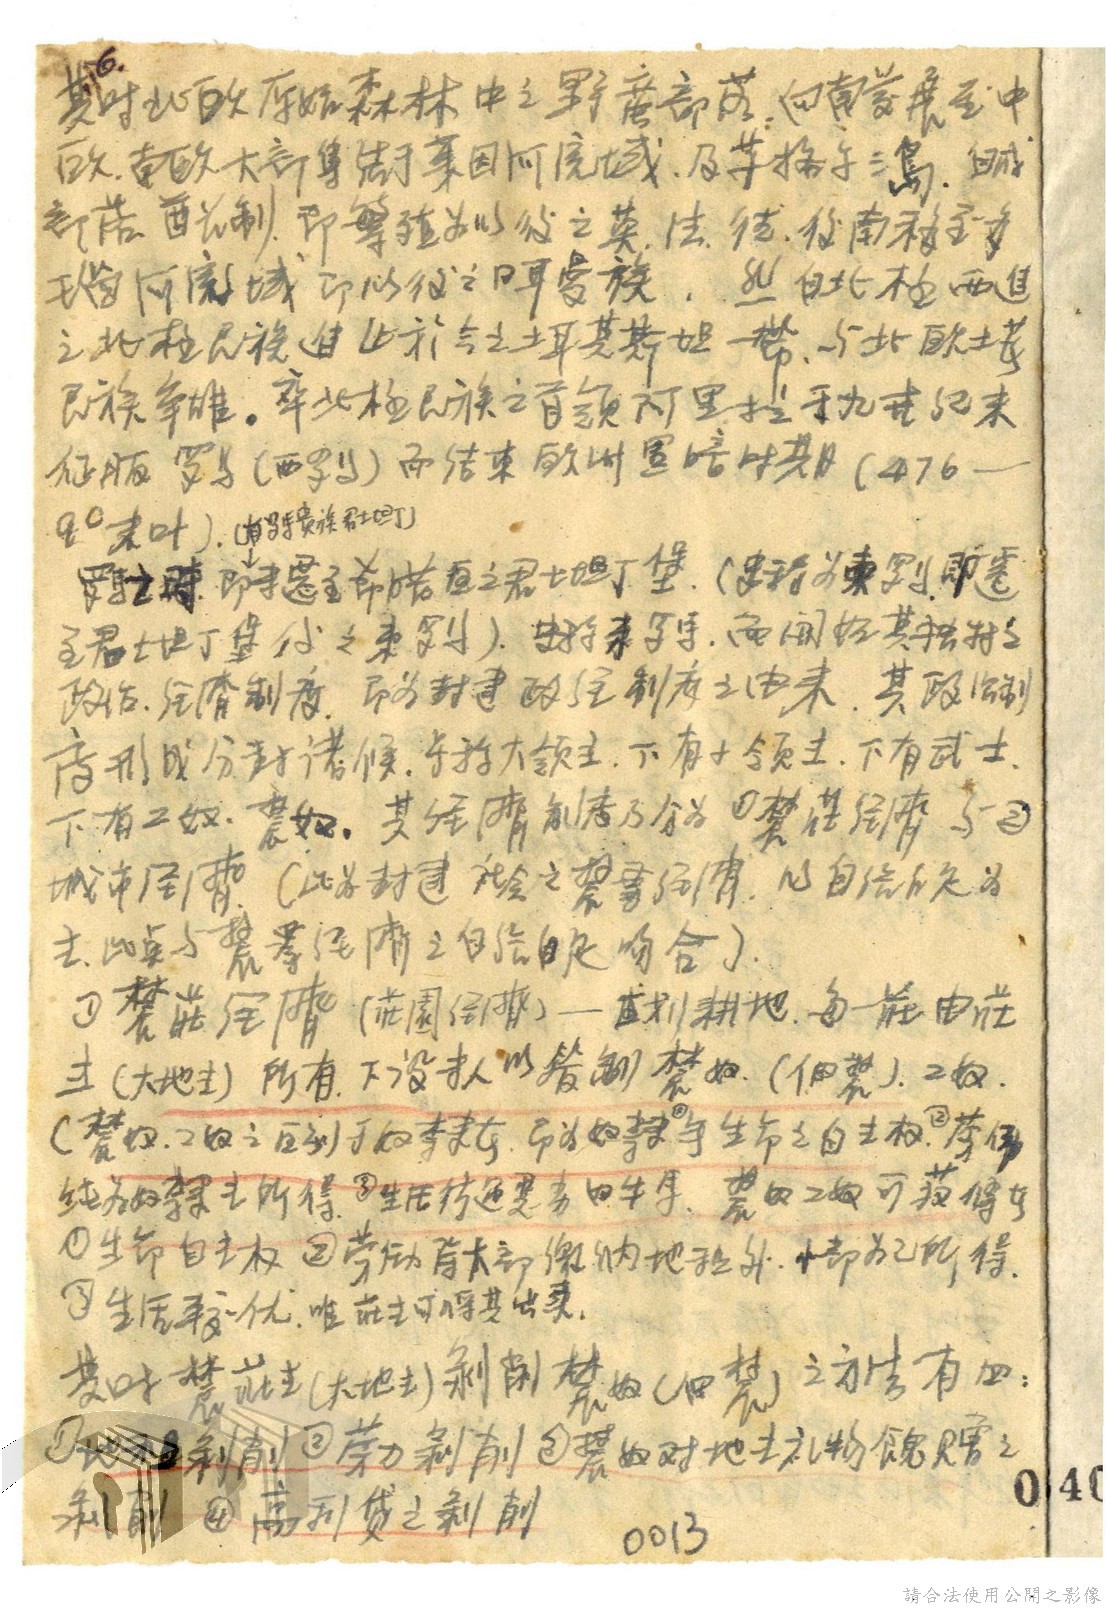 6.
其时北欧原始森林中之野蛮部落,向南发展至中
欧.东欧大部集结于莱因河流域.及英格兰三岛.
部落酋长制.即繁殖为以后之英.法.德.后南移至多
瑙河流域即以后之日耳曼族.自北极西进
之北极民族进止于今之土耳其斯坦一带.与北欧土著
民族争雄。卒北极民族之首领阿里拉于九世纪末
征服罗马(西罗马)而结束欧洲黑暗时期(476—
90末叶).(有罗马贵族君士坦丁)
即未迁至希腊之君士坦丁堡.(史称为东罗马.即迁
至君士坦丁堡后之东罗马).史称东罗马.而开始其独特之
政治.经济制度.即为封建政经制度之由来.其政治制
度形成分封诸候.号称大领主.下有小领主.下有武士.
下有工奴.农奴。其经济制度乃分为①农庄经济与②
城市经济.(此为封建社会之农业经济.以自给自足为
主.此点与农业经济之自给自足吻合).
①农莊经济(莊園经济)—直划耕地.每一莊由莊
主(大地主)所有.下设专人以管制农奴.(佃农).工奴.
(农奴.工奴之区别于奴隶者.即为奴隶①无生命之自主权.②劳作
纯为奴隶主所得.③生活待遇悪劣如牛马.农奴工奴可获得者
①生命自主权②劳动有大部缴纳地租外.小部为己所得.
③生活较优.唯莊主可将其出卖.
其时农莊主(大地主)剥削农奴(佃农)之方法有四:
①地租剥削②劳力剥削③农奴对地主礼物馈赠之
剥削④高利贷之剥削
0013
040
請合法使用公開之影像